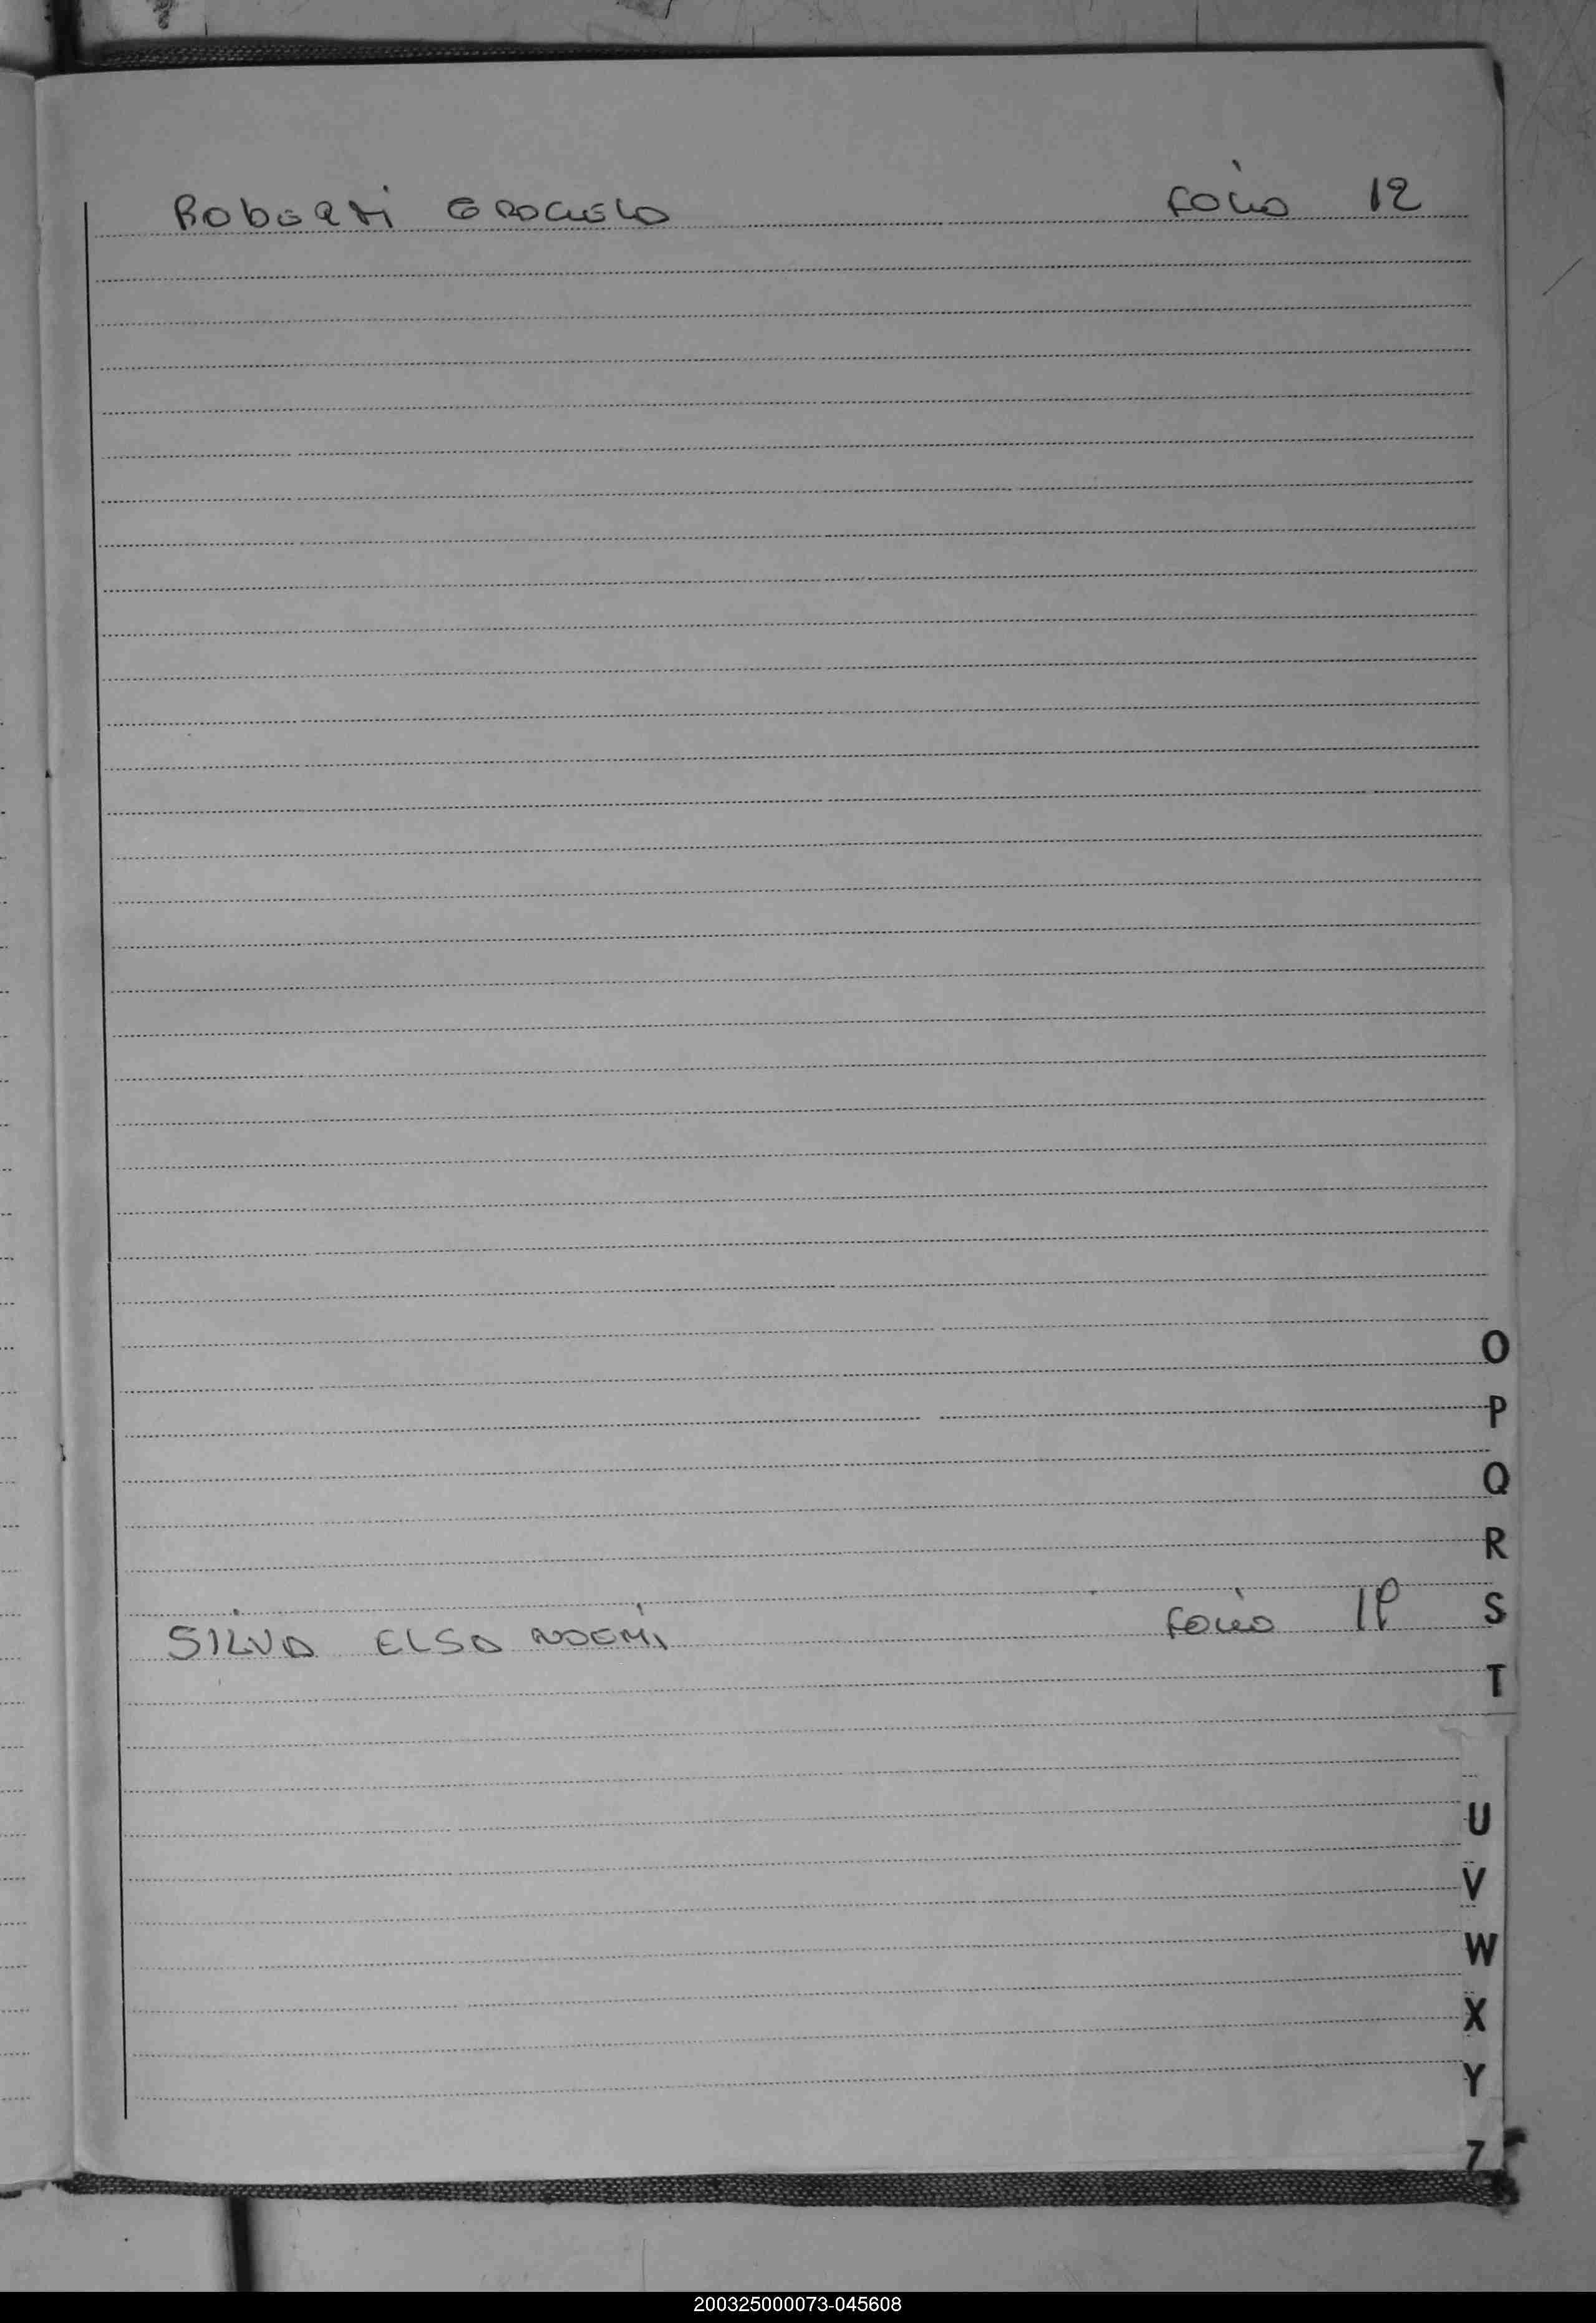 Roberti Graciela folio 12
O
P
Q
R
SILVA ELSA NOEMI folio 19 S
T
U
V
W
X
Y
Z
200325000073-045608